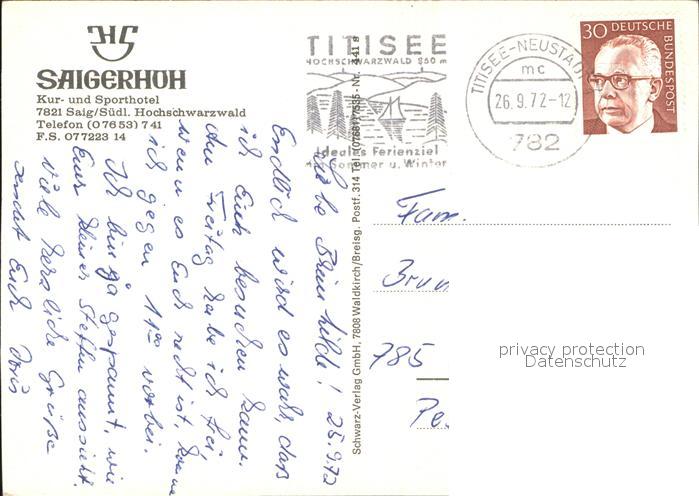 SAIGERHÖH
Kur- und Sporthotel
7821 Saig/Südl. Hochschwarzwald
Telefon (0 76 53) 7 41
F.S. 077223 14
TITISEE
HOCHSCHWARZWALD 860 m
Ideales Ferienziel
Sommer u. Winter
TITISEE-NEUSTADT
mc
26.9.72-12
782
30 DEUTSCHE
BUNDESPOST
Schwarz-Verlag GmbH, 7808 Waldkirch/Breisg. Postf. 314 Tel. (07681) 7535 - Nr. 441 s
Liebe Brunhilde! 25.9.72
Endlich wird es wahr, daß
ich Euch besuchen kann.
Am Freitag habe ich frei,
wenn es Euch recht ist, komme
ich gegen 11 00 vorbei.
Ich bin ja gespannt, wie
Euer kleiner Steffen aussieht.
Viele herzliche Grüße
sendet Euch Doris
Fam.
Brun
785
privacy protection
Datenschutz